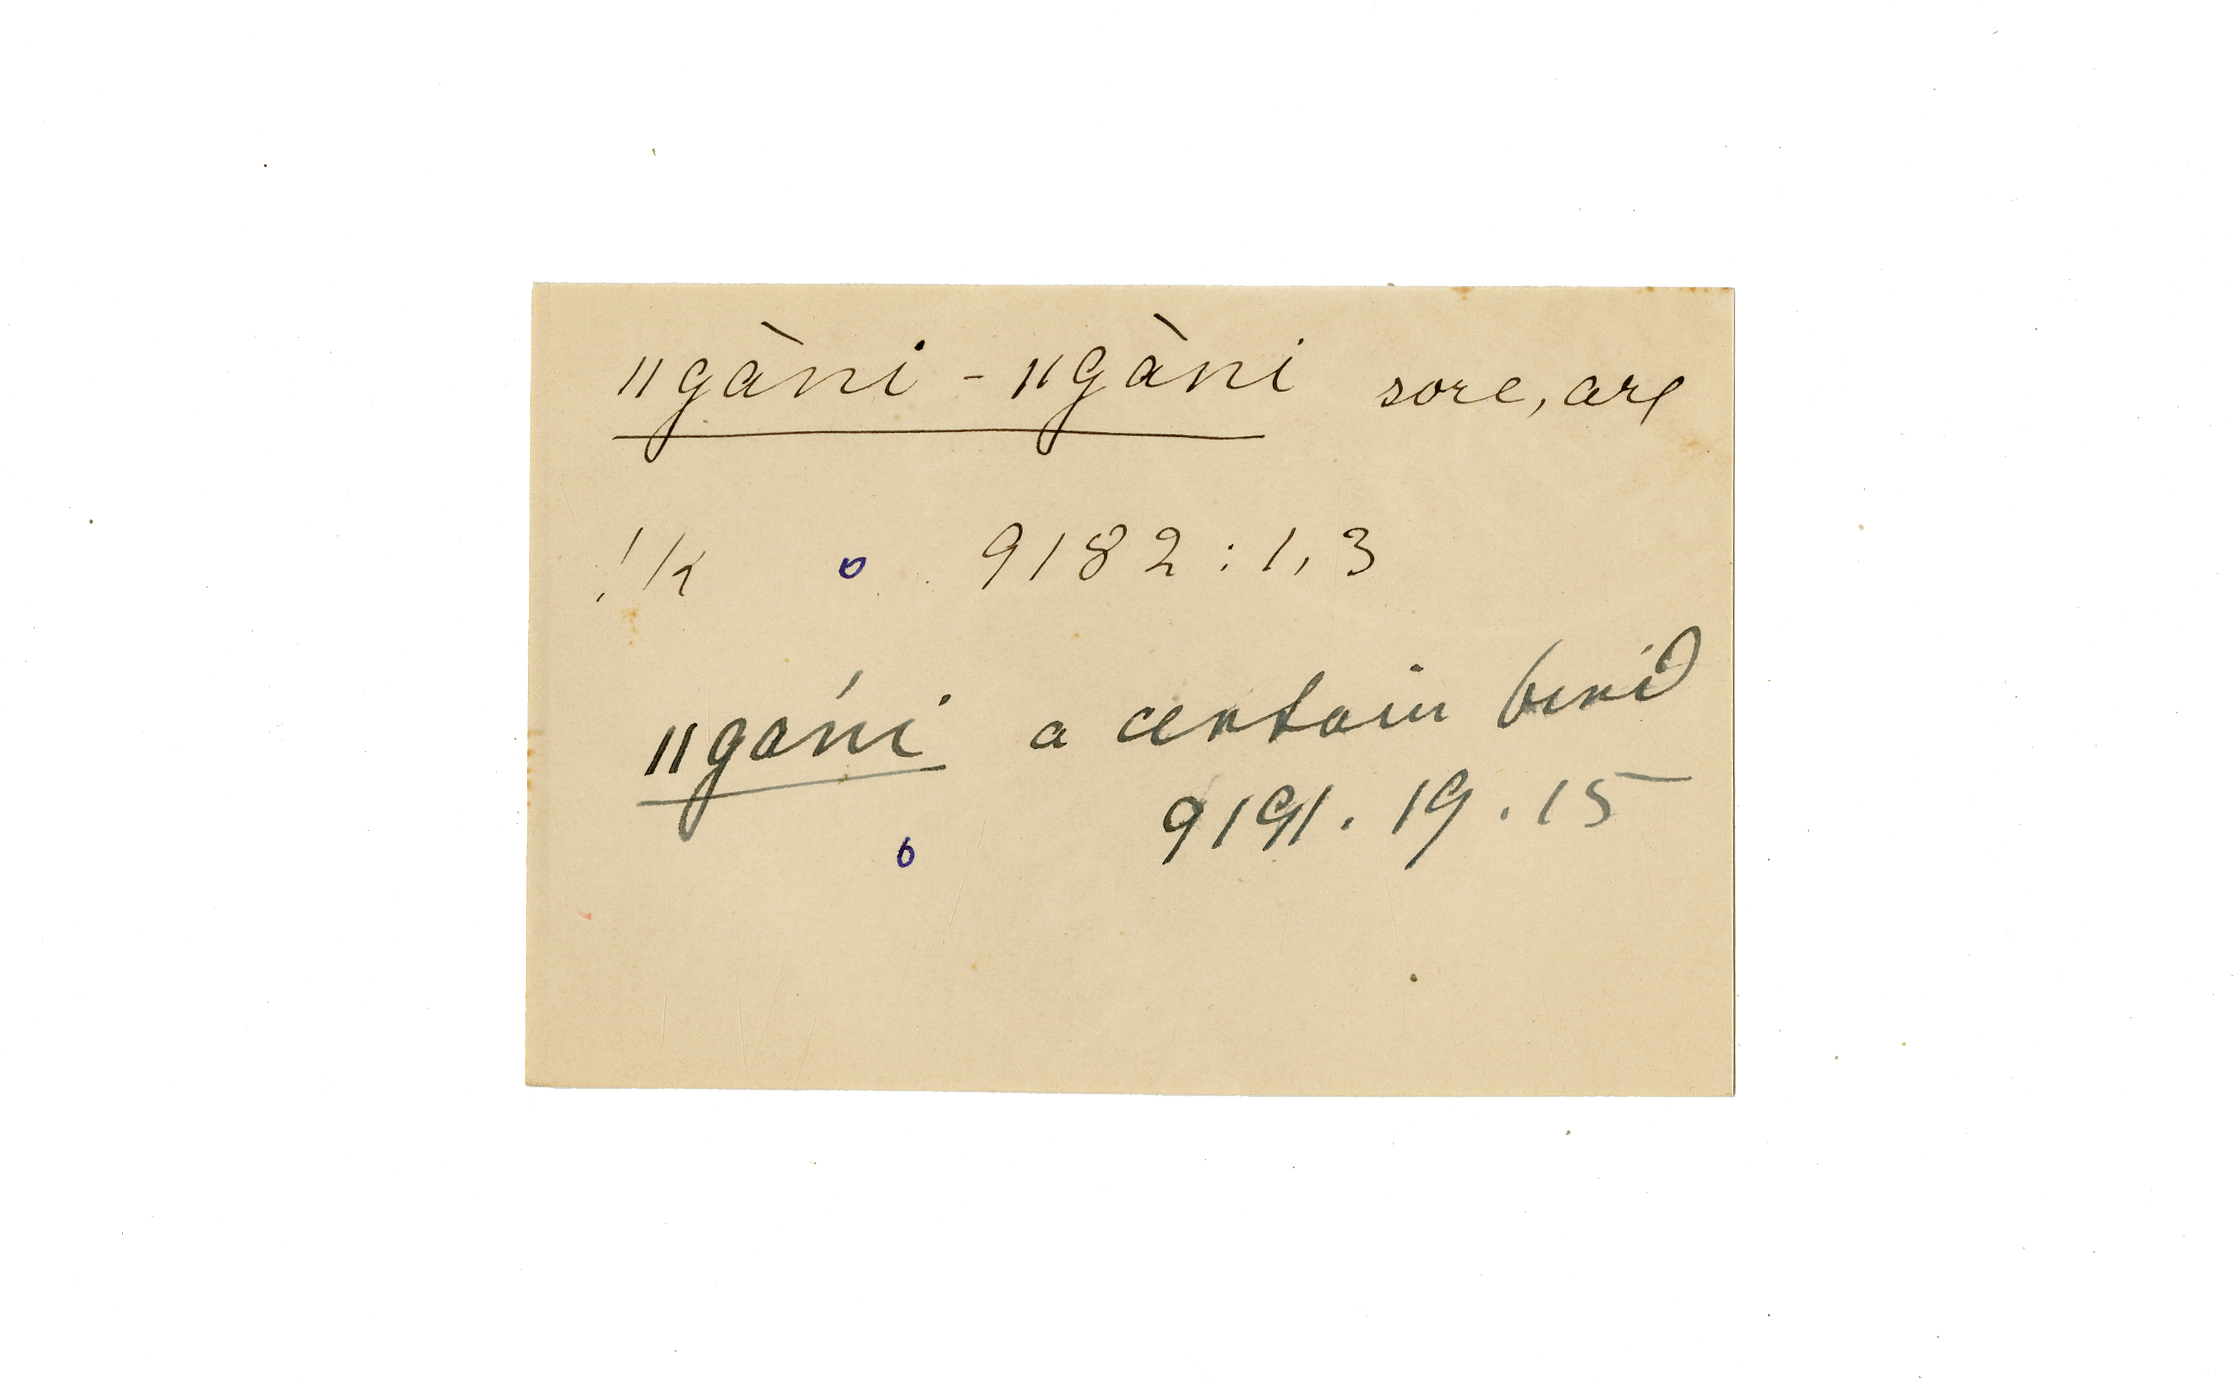 ǁgàni - ǁgàni sore, are
!k o 9182 : 1, 3
ǁgáni a certain bird
9191. 19. 15
o